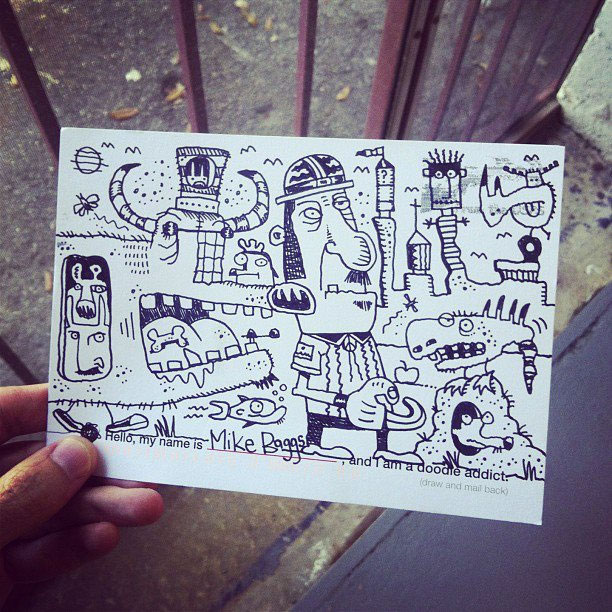 ?
Hello, my name is Mike Baggs, and I am a doodle addict.
(draw and mail back)